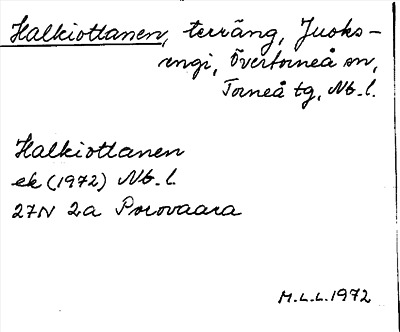 Halkiottanen, terräng, Juoks-
engi, Övertorneå sn,
Torneå tg, Nb. l.
Halkiottanen
ek (1972) Nb. l.
27N 2a Porovaara
M.L.L. 1972